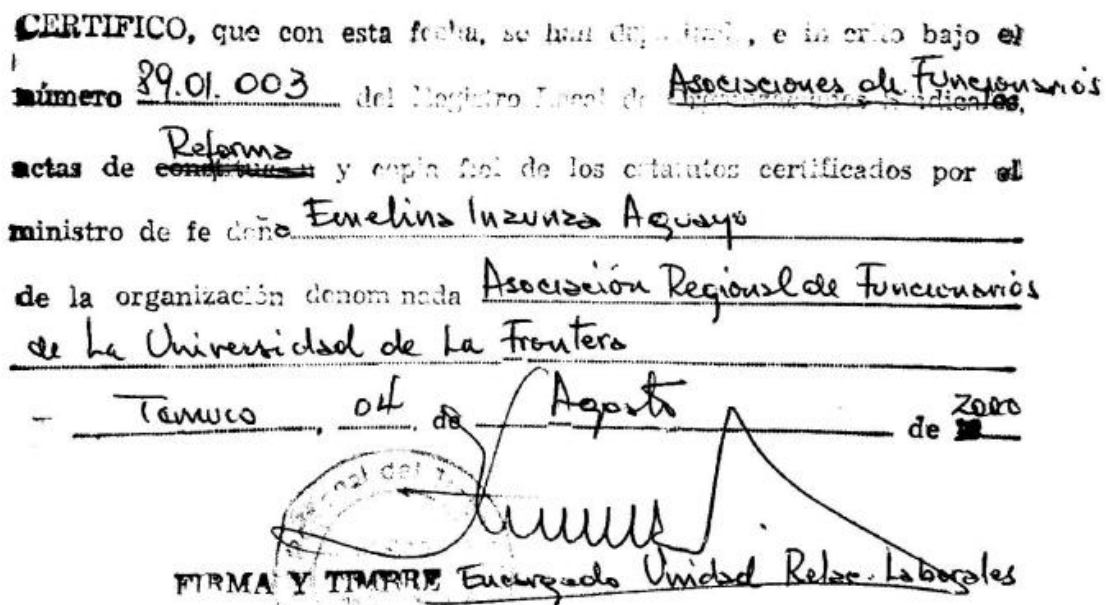 CERTIFICO, que con esta fecha, se han depositado, e inscrito bajo el
número 89.01.003 del Registro Local de Asociaciones de Funcionarios
actas de Reforma y copia fiel de los estatutos certificados por el
ministro de fe doña Emelina Inzunza Aguayo
de la organización denominada Asociación Regional de Funcionarios
de La Universidad de La Frontera
Temuco, 04 de Agosto de 2000
FIRMA Y TIMBRE Encargado Unidad Relac. Laborales